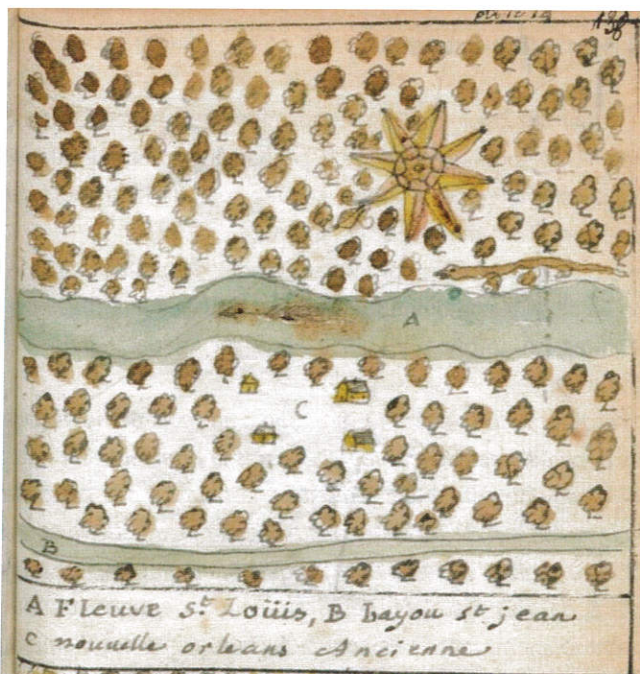 138
A
C
B
A Fleuve St. Loüis, B bayou st jean
C nouuelle orleans Ancienne